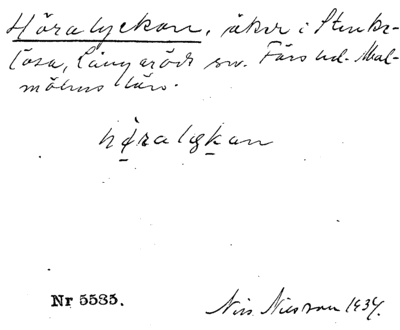 Höralyckan, åker i Stenks-
låsa, Långaröds sn. Färs hd. Mal-
möhus län.
høralykan
Nr 5585.
Nils Nilsson 1934.